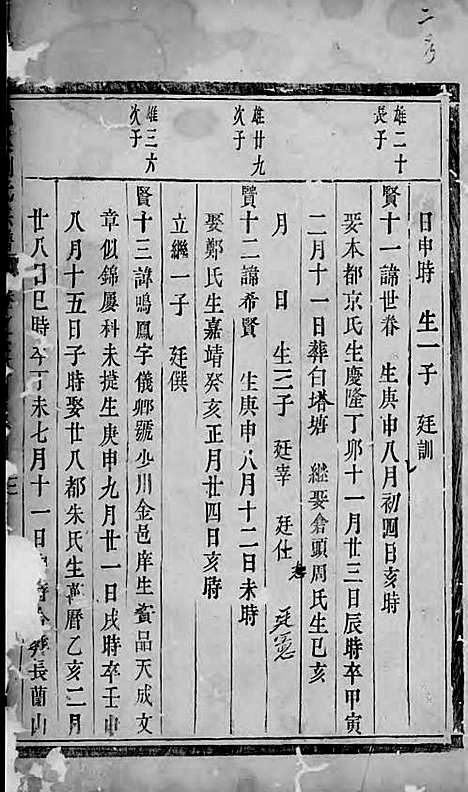 日申時 生一子 廷訓
雄二十
長子
賢十一諱世春 生庚申八月初四日亥時
娶本都京氏生慶隆丁卯十一月廿三日辰時卒甲寅
二月十一日葬白塔塘 繼娶倉頭周氏生己亥
月 日 生三子 廷宰 廷仕 廷憲
雄廿九
次子
賢十二諱希賢 生庚申八月十二日未時
娶鄭氏生嘉靖癸亥正月廿四日亥時
立繼一子 廷僎
雄三六
次子
賢十三諱鳴鳳字儀卿號少川金邑庠生賓品天成文
章似錦屡科未捷生庚申九月廿一日戌時卒壬申
八月十五日子時娶廿八都朱氏生萬曆乙亥二月
廿八日巳時卒丁未七月十一日 長蘭山